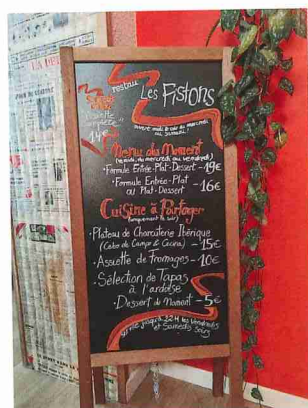 restau
Les Fistons
ouvert midi & soir du mercredi
au samedi !
14€
Menu du Moment
(le midi, du mercredi au vendredi)
· Formule Entrée-Plat-Dessert - 19€
· Formule Entrée-Plat
ou Plat-Dessert - 16€
Cuisine à Partager
(uniquement le soir)
· Plateau de Charcuterie Ibérique
(Cabo de Campo & Cecina) - 15€
· Assiette de Fromages - 10€
· Sélection de Tapas
à l'ardoise
· Dessert du Moment - 5€
jusqu'à 22H les Vendredis
et Samedis Soirs
LA DE